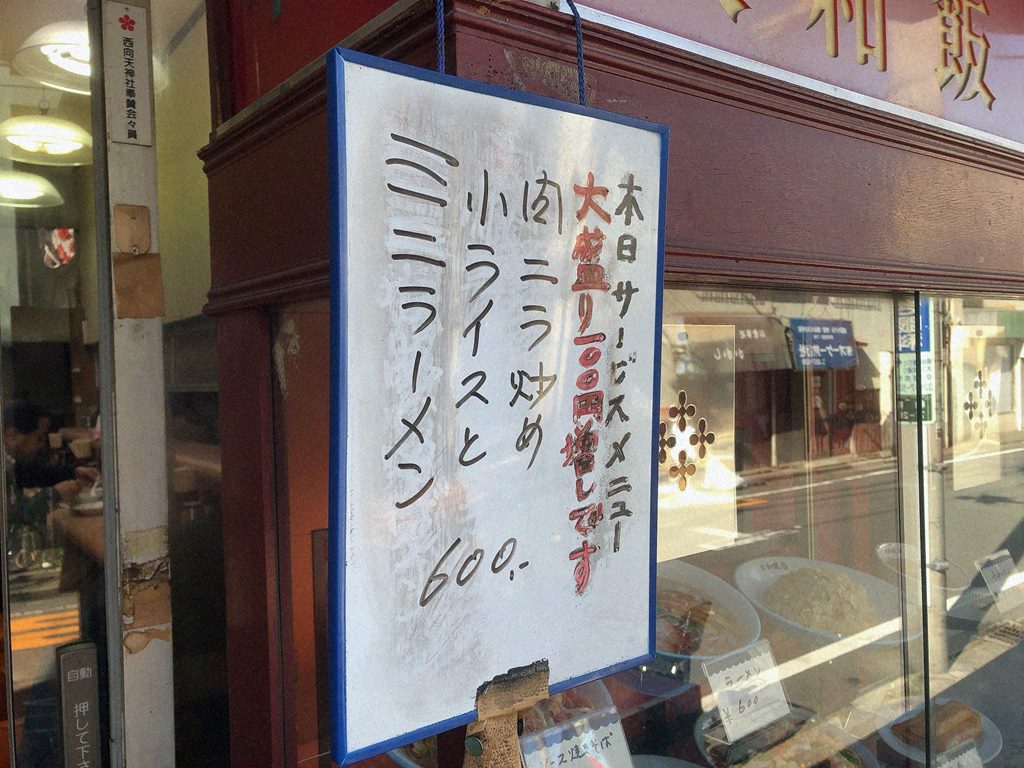 本日サービスメニュー
大盛り一〇〇円増しです
肉ニラ炒め
小ライスと
ミニラーメン
600.-
西向天神社奉賛会々員
自動
押して下さ
ラーメン
¥600
ソース焼きそば
和飯